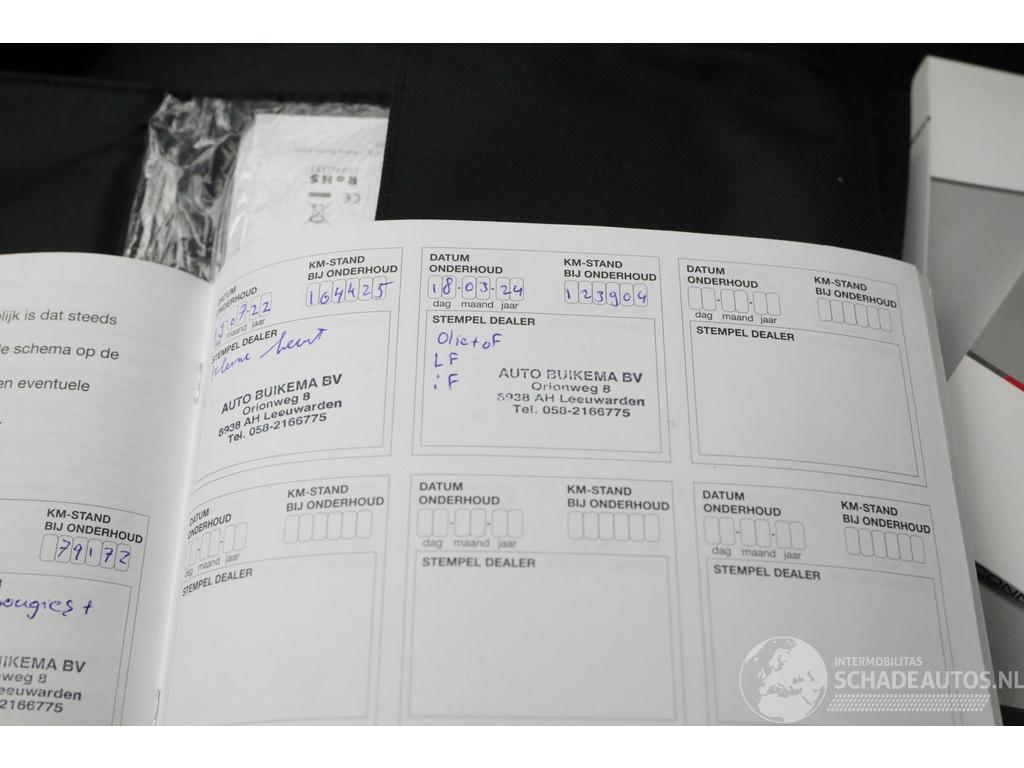 RoHS
COMPLIANT
CE
lijk is dat steeds
le schema op de
en eventuele
KM-STAND
BIJ ONDERHOUD
79172
bougies +
UIKEMA BV
nweg 8
eeuwarden
2166775
DATUM
ONDERHOUD
KM-STAND
BIJ ONDERHOUD
104425
maand jaar
STEMPEL DEALER
kleine beurt
AUTO BUIKEMA BV
Orionweg 8
8938 AH Leeuwarden
Tel. 058-2166775
DATUM
ONDERHOUD
18-03-24
dag maand jaar
KM-STAND
BIJ ONDERHOUD
123904
STEMPEL DEALER
Olie + oF
LF
iF
AUTO BUIKEMA BV
Orionweg 8
8938 AH Leeuwarden
Tel. 058-2166775
DATUM
ONDERHOUD
dag maand jaar
KM-STAND
BIJ ONDERHOUD
STEMPEL DEALER
DATUM
ONDERHOUD
dag maand jaar
KM-STAND
BIJ ONDERHOUD
STEMPEL DEALER
DATUM
ONDERHOUD
dag maand jaar
KM-STAND
BIJ ONDERHOUD
STEMPEL DEALER
DATUM
ONDERHOUD
dag maand jaar
KM-STAND
BIJ ONDERHOUD
STEMPEL DEALER
INTERMOBILITAS
SCHADEAUTOS.NL